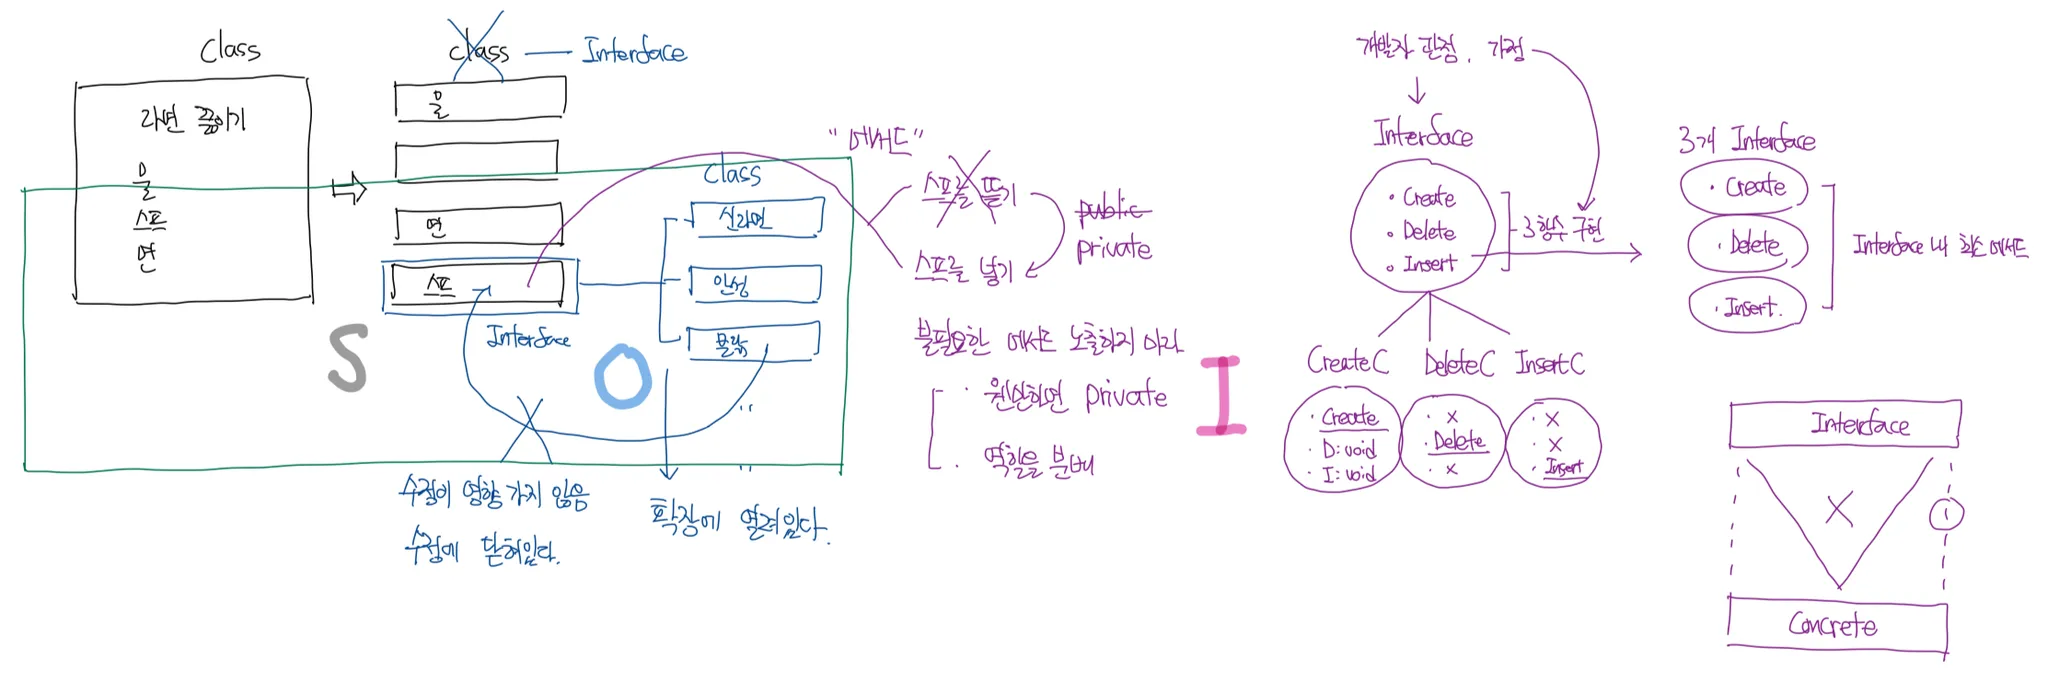 Class
라면 끓이기
물
스프
면
class
Interface
물
면
스프
Interface
S
Class
신라면
안성
O
수정이 영향 가지 않음
수정에 닫혀있다.
확장에 열려있다.
"메서드"
스프를 뜯기
스프를 넣기
public
private
불필요한 메서드 노출하지 마라
· 웬만하면 private
· 역할을 분배
I
개발자 관점, 가정
Interface
· Create
· Delete
· Insert
3함수 구현
CreateC
DeleteC
InsertC
· Create
· D: void
· I: void
· X
· Delete
· X
· X
· X
· Insert
3개 Interface
· Create
· Delete
· Insert.
Interface 내 최소 메서드
Interface
X
Concrete